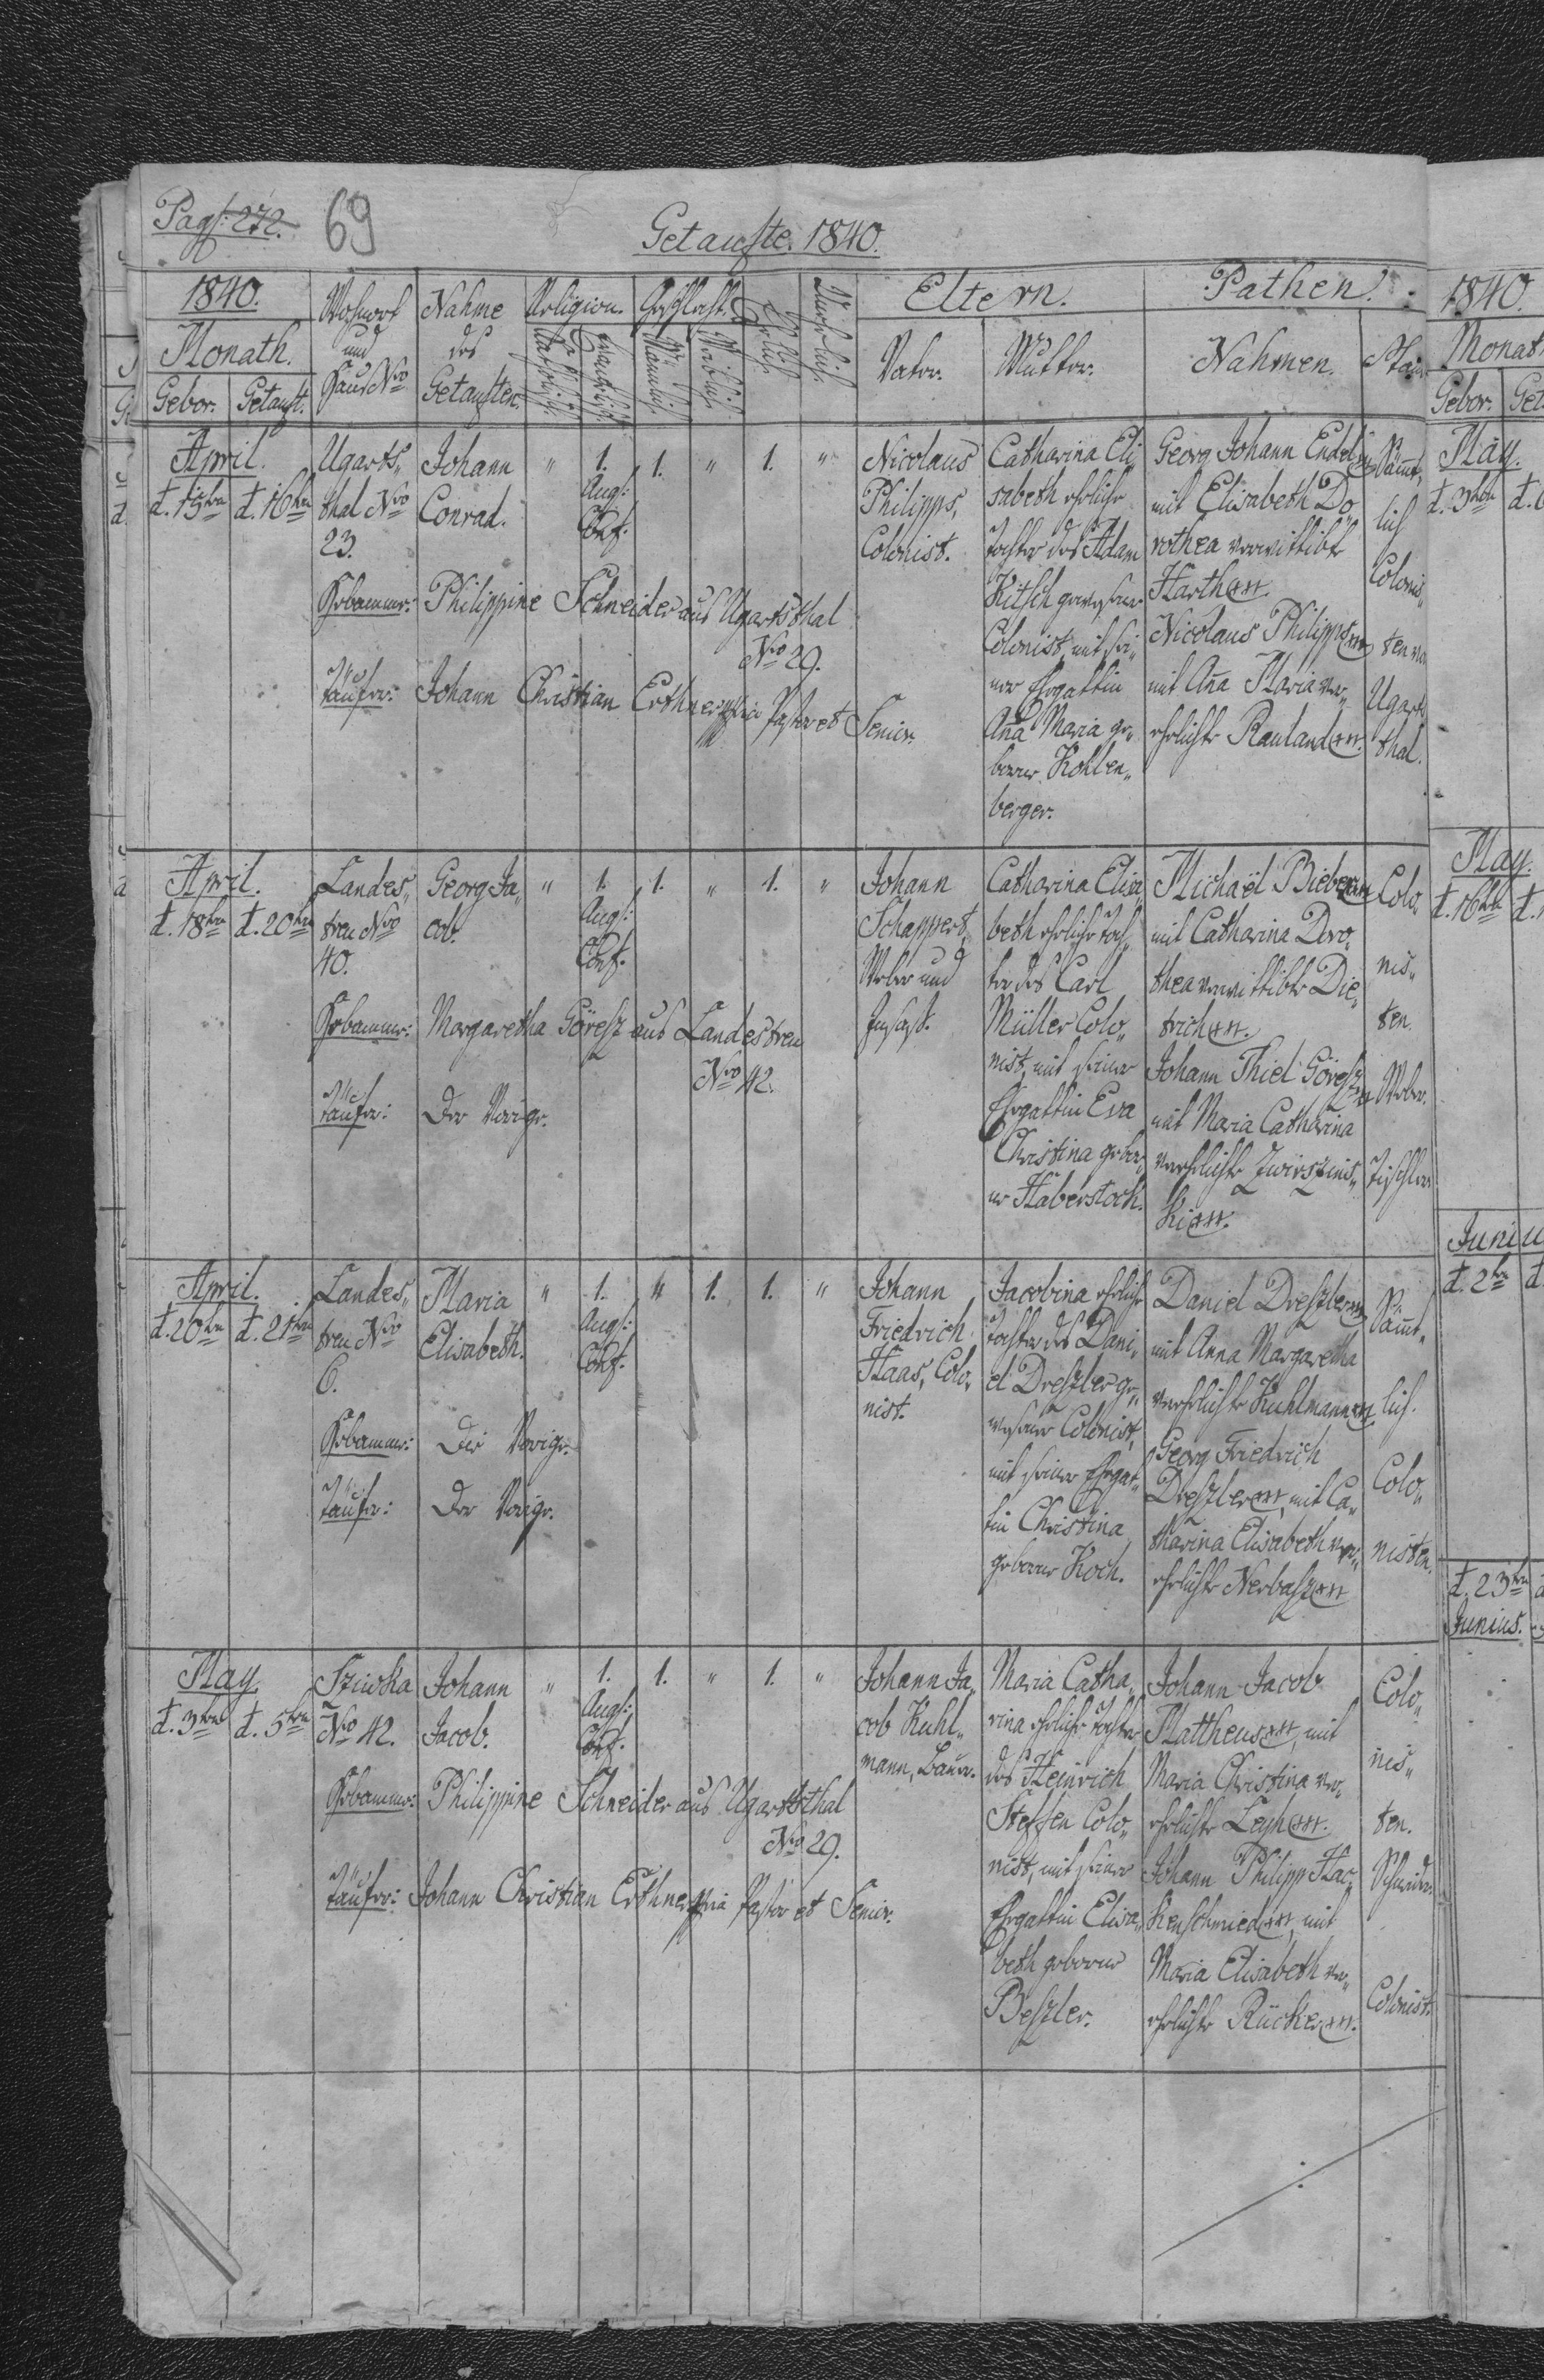 Pag: 272. 69
Getaufte. 1840.
1840.
Monath.
Gebor. Getauft.
Wohnort
und
Haus Nro
Nahme
des
Getauften.
Religion.
Katholisch.
Evangelisch.
Geschlecht.
Männlich.
Weiblich.
Ehelich.
Unehelich.
Eltern.
Vater. Mutter.
Pathen.
Nahmen.
April.
d. 15ten d. 16ten
Ugarts„
thal Nro
23.
Johann
Conrad.
" 1. 1. " 1. "
Augs:
Conf.
Nicolaus
Philipps,
Colonist.
Catharina Eli„
sabeth eheliche
Tochter des Adam
Kitsch gewesener
Colonist, mit sei„
ner Ehegattin
Aña Maria ge„
borne Kohlen„
berger.
Georg Johann Endel
mit Elisabeth Do„
rothea verwittibte
Harth
Nicolaus Philipps
mit Aña Maria ver„
ehelichte Rauland
Säm̃t„
lich
Colonis„
ten von
Ugarts
thal.
Hebamme: Philippine Schneider aus Ugartsthal
Nro 29.
Täufer: Johann Christian Erthner pria Pastor et Senior.
April.
d. 18ten d. 20ten
Landes„
treu Nro
40.
Georg Ja„
cob.
" 1. 1. " 1. "
Augs:
Conf.
Johann
Schappert,
Weber und
Insaß.
Catharina Elisa„
beth eheliche Toch„
ter des Carl
Müller Colo„
nist, mit seiner
Ehegattin Eva
Christina gebor„
ne Haberstock.
Michaël Bieber
mit Catharina Doro„
thea verwittibte Die„
trich
Johann Thiel Göresz
mit Maria Catharina
verehelichte Zwirszins„
ki
Colo„
nis„
ten.
Weber.
Tischler
Hebamme: Margaretha Göresz aus Landestreu
Nro 42.
Täufer: Der Vorige.
April.
d. 20ten d. 21ten
Landes„
treu Nro
6.
Maria
Elisabeth.
" 1. " 1. 1. "
Augs:
Conf.
Johann
Friedrich
Haas, Colo„
nist.
Jacobina eheliche
Tochter des Dani„
el Dreszler ge„
wesener Colonist,
mit seiner Ehegat„
tin Christina
geborne Koch.
Daniel Dreszler
mit Anna Margaretha
verehelichte Kuhlmann
Georg Friedrich
Dreszler, mit Ca„
tharina Elisabeth ver„
ehelichte Nerbasz
Säm̃t„
lich.
Colo„
nisten.
Hebamme: Die Vorige.
Täufer: Der Vorige.
May.
d. 3ten d. 5ten
Sziwka
Nro 42.
Johann
Jacob.
" 1. 1. " 1. "
Augs:
Conf.
Johann Ja„
cob Kuhl„
mann, Bauer.
Maria Catha„
rina eheliche Tochter
des Heinrich
Steffen Colo„
nist, mit seiner
Ehegattin Elisa„
beth geborne
Beszler.
Johann Jacob
Mattheus, mit
Maria Christina ver„
ehelichte Leyh
Johann Philipp Hac„
kenschmied, mit
Maria Elisabeth ver„
ehelichte Rücker
Colo„
nis„
ten.
Schneider
Colonist.
Hebamme: Philippine Schneider aus Ugartsthal
Nro 29.
Täufer: Johann Christian Erthner pria Pastor et Senior.
1840.
Monath
Gebor. Get
May.
d. 3ten d.
May.
d. 16ten d.
Juniu
d. 2ten d
d. 23ten
Junius.